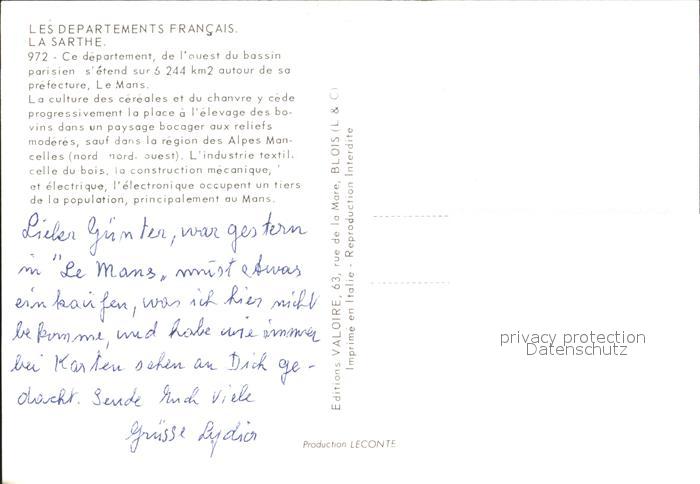 LES DEPARTEMENTS FRANÇAIS.
LA SARTHE.
972 - Ce département, de l'ouest du bassin
parisien s'étend sur 6 244 km2 autour de sa
préfecture, Le Mans.
La culture des céréales et du chanvre y cède
progressivement la place à l'élevage des bo-
vins dans un paysage bocager aux reliefs
modérés, sauf dans la région des Alpes Man-
celles (nord nord-ouest). L'industrie textil.
celle du bois, la construction mécanique,
et électrique, l'électronique occupent un tiers
de la population, principalement au Mans.
Lieber Günter, war gestern
in "Le Mans„ müst etwas
einkaufen, was ich hier nicht
bekomme, und habe wie immer
bei Karten sehen an Dich ge-
dacht. Sende Euch viele
Grüsse Lydia
Editions VALOIRE, 63, rue de la Mare, BLOIS (L & C)
Imprimé en Italie - Reproduction Interdite
privacy protection
Datenschutz
Production LECONTE